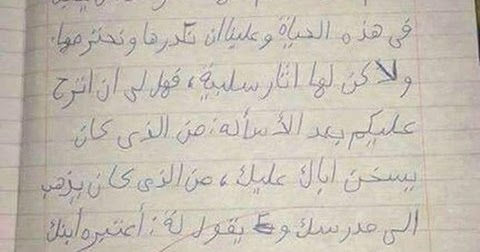 فى هذه الحياة وعلينا ان نقدرها ونحترمها.
ولاكن لها اثار سلبية، فهل لى ان اترح
عليكم بعد الأسألة: من الذى كان
يسخن اباك عليك، من الذى كان يزهب
الى مدرسك و يقول لة: أعتبره أبنك